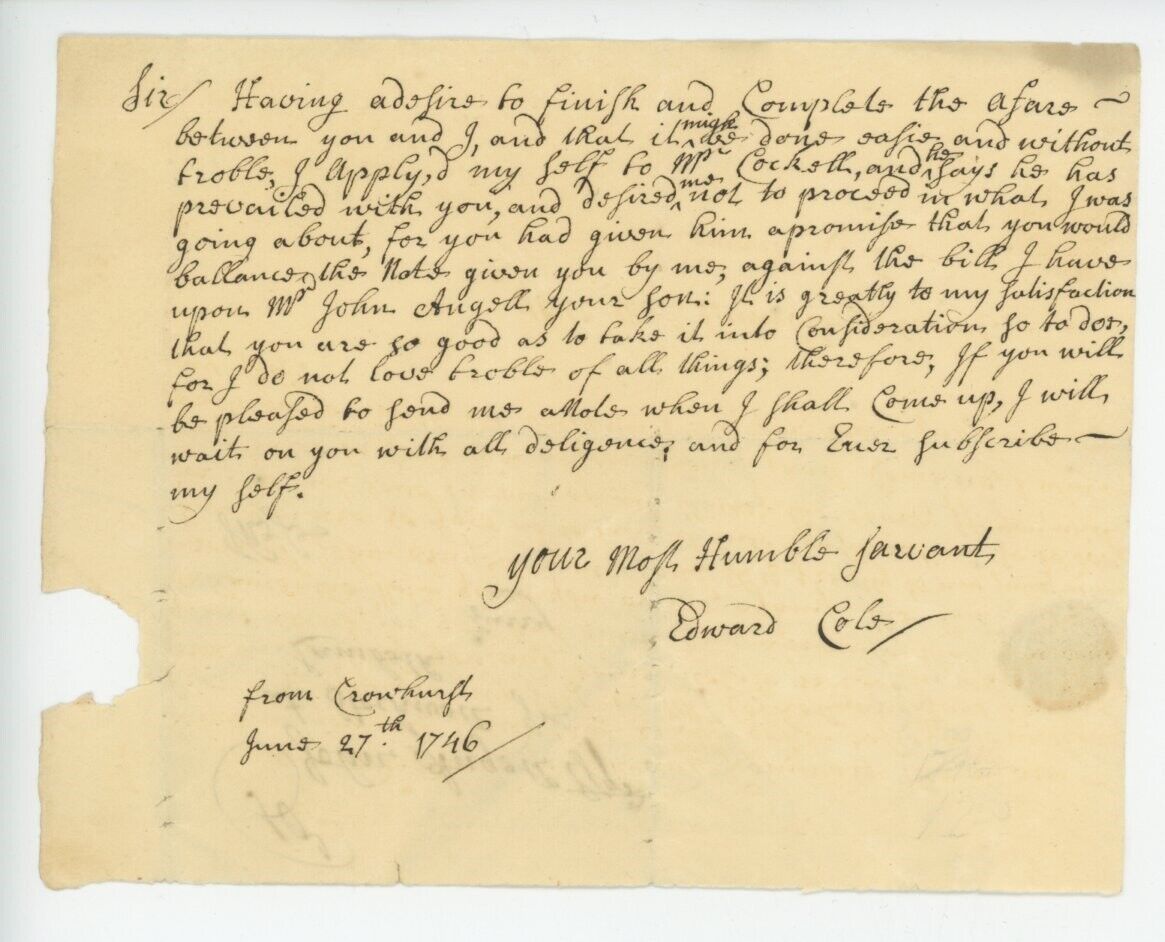 Sir/ Having adesire to finish and Complete the afare ~
between you and I, and that it migh be done easie and without
troble, I Apply,d my self to Mr Cockell, and he says he has
prevailed with you, and desired me not to proceed in what I was
going about, for you had given him apromise that you would
ballance the Note given you by me, against the bill I have
upon Mr John Angell your son: It is greatly to my satisfaction
that you are so good as to take it into Consideration so to doe,
for I do not love troble of all things; therefore, If you will
be pleased to send me aNote when I shall Come up, I will
wait on you with all deligence, and for Ever subscribe ~
my self.
your Most Humble sarvant
Edward Cole/
from Crowhurst
June 27th. 1746/